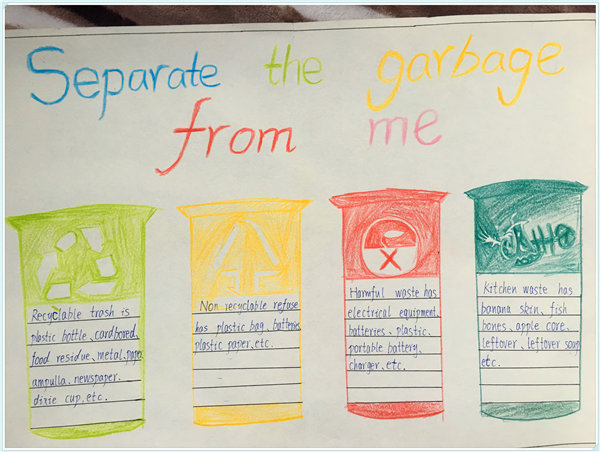 Separate the garbage
from me
Recyclable trash is
plastic bottle、cardbored、
food residue、metal、paper
ampulla、newspaper.
dixie cup、etc.
Non recyclable refuse
has plastic bag、batteries
plastic paper、etc.
Harmful waste has
electrical equipment、
batteries、plastic、
portable battery、
charger、etc.
Kitchen waste has
banana skin、fish
bones、apple core、
leftover、leftover soup
etc.